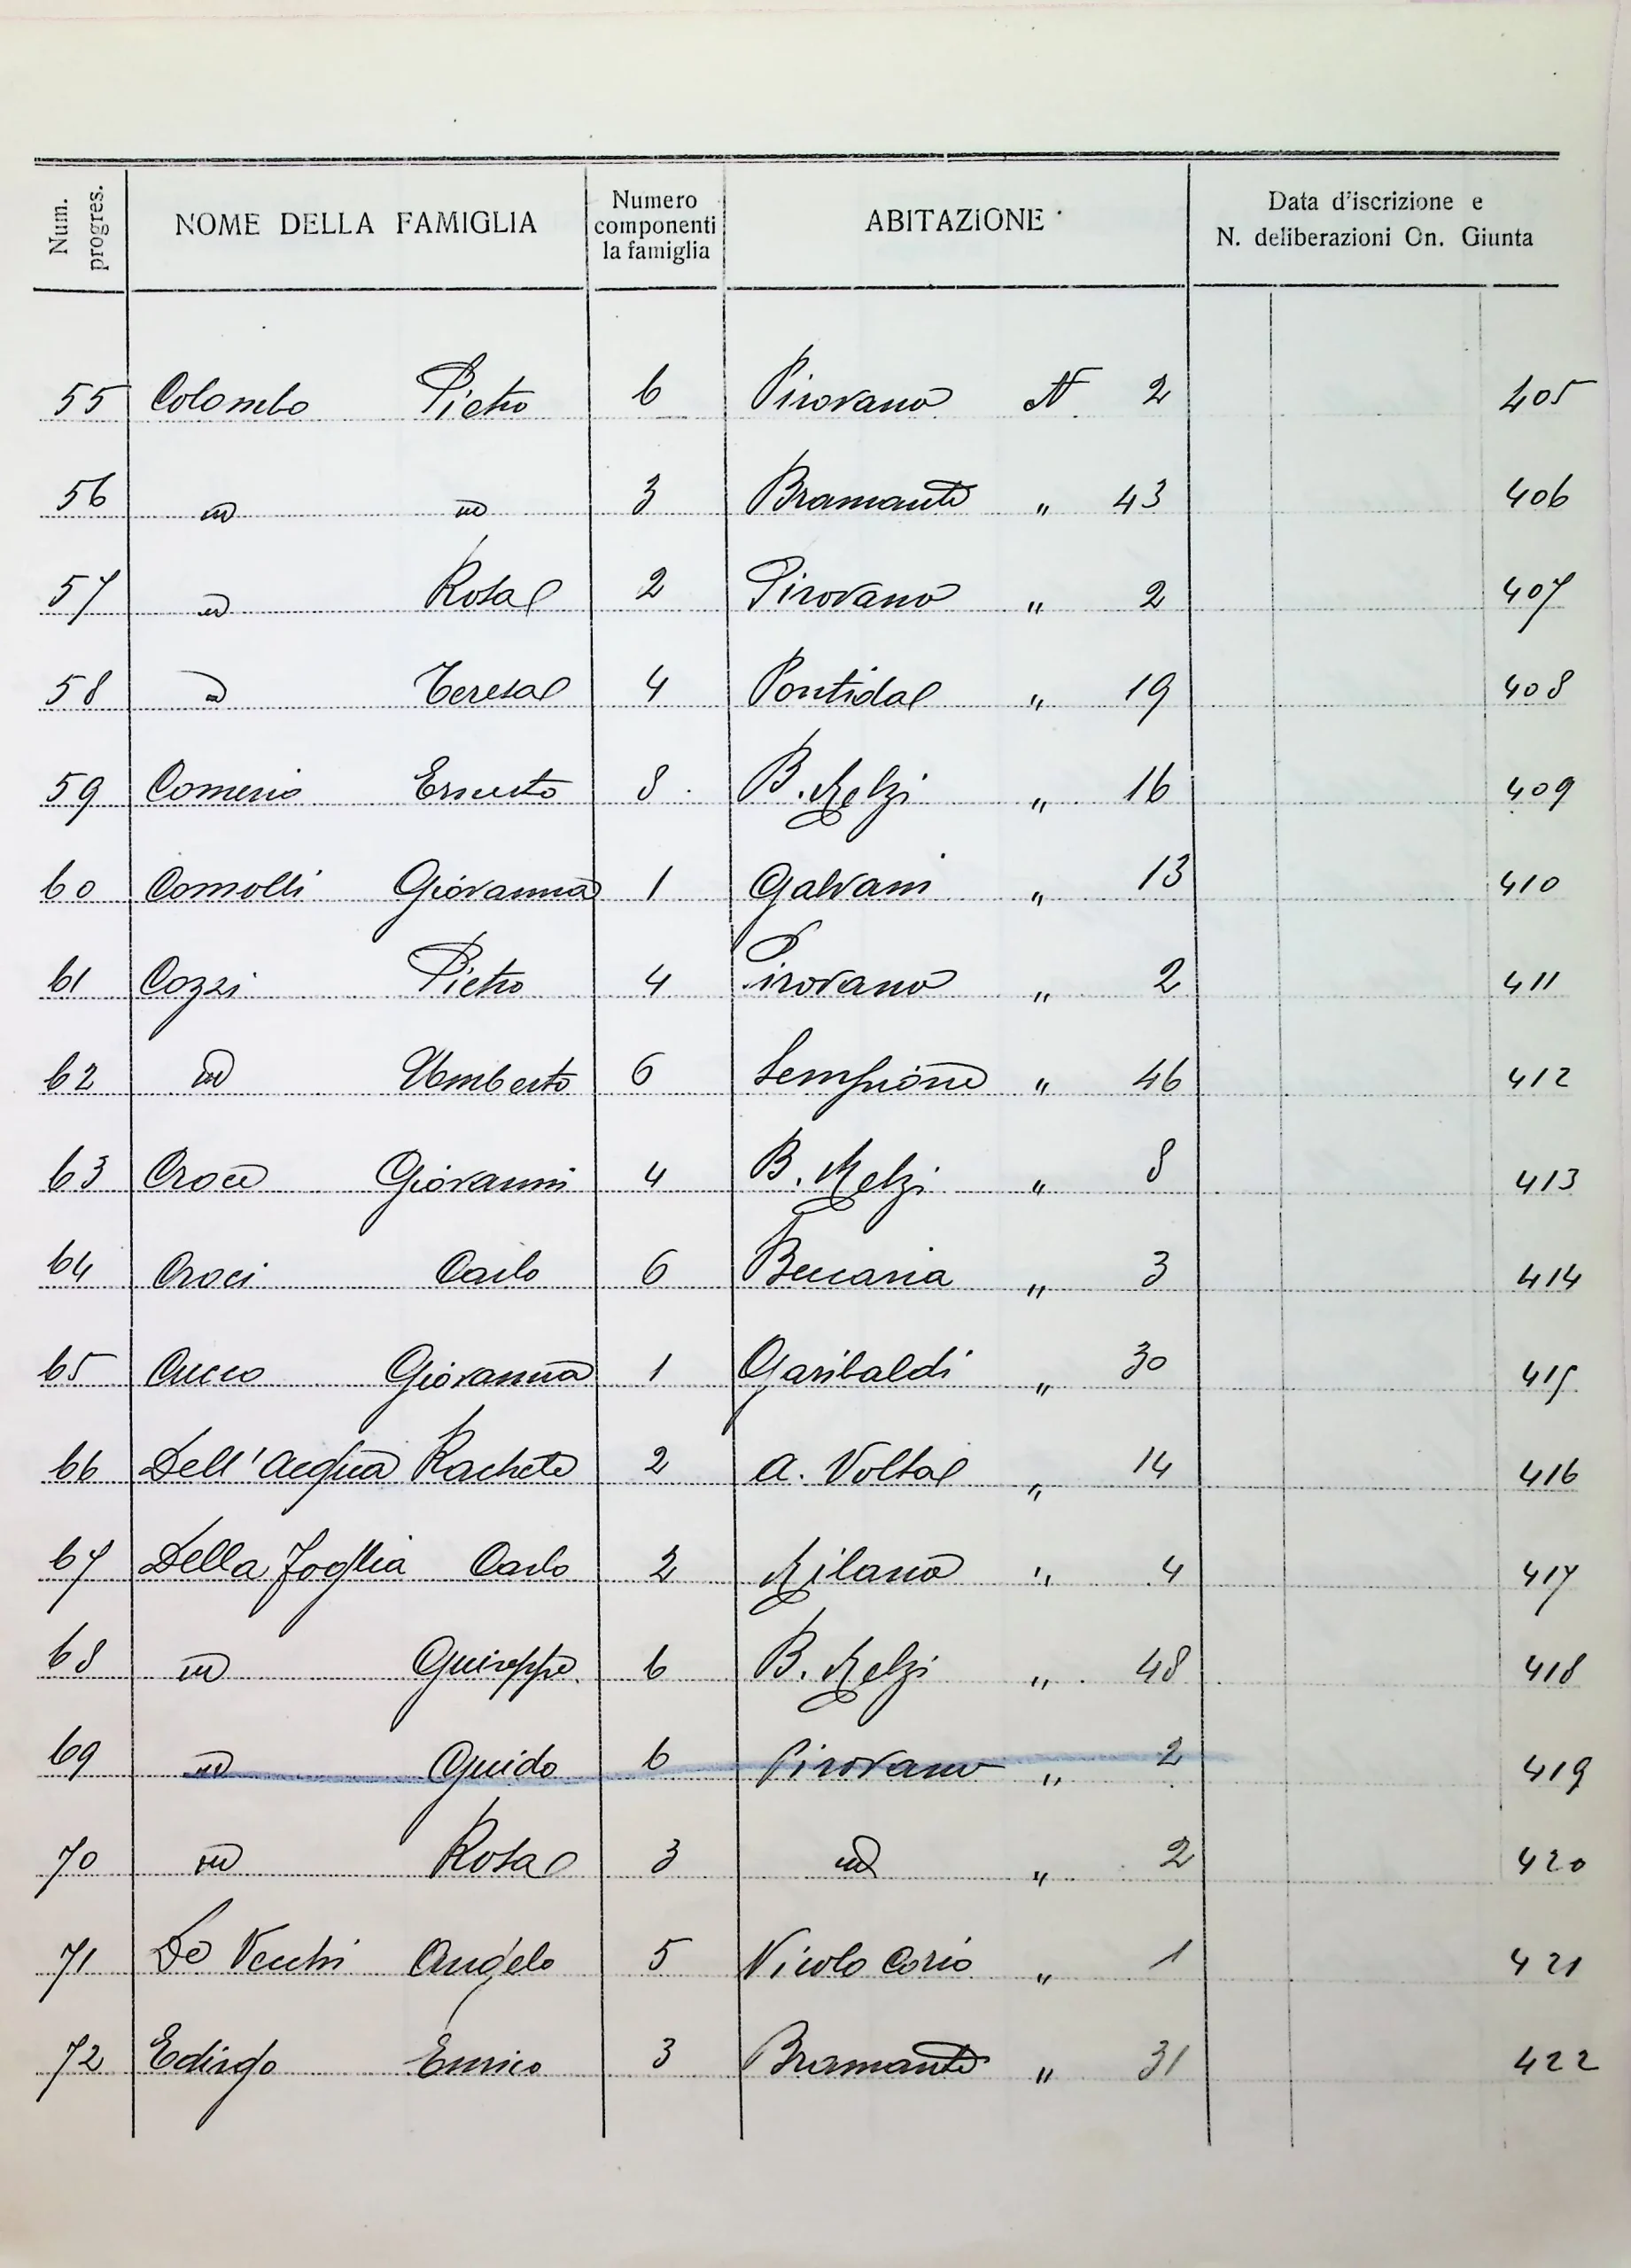 Num. progres.
NOME DELLA FAMIGLIA
Numero componenti la famiglia
ABITAZIONE
Data d'iscrizione e N. deliberazioni On. Giunta
55 Colombo Pietro 6 Pirovano N 2 405
56 id id 3 Bramante " 43 406
57 id Rosa 2 Pirovano " 2 407
58 id Teresa 4 Pontida " 19 408
59 Comerio Ernesto 8 B. Melzi " 16 409
60 Comolli Giovanna 1 Galvani " 13 410
61 Cozzi Pietro 4 Pirovano " 2 411
62 id Umberto 6 Sempione " 46 412
63 Croce Giovanni 4 B. Melzi " 8 413
64 Croci Carlo 6 Beccaria " 3 414
65 Cucco Giovanna 1 Garibaldi " 30 415
66 Dell'Acqua Rachele 2 A. Volta " 14 416
67 Della Foglia Carlo 2 Milano " 4 417
68 id Giuseppe 6 B. Melzi " 48 418
69 id Guido 6 Pirovano " 2 419
70 id Rosa 3 id " 2 420
71 De Vecchi Angelo 5 Nicolo Corio " 1 421
72 Enrico 3 Bramante " 31 422